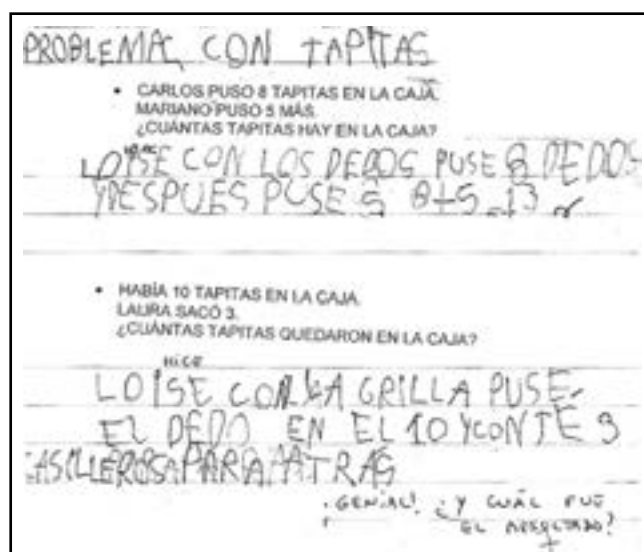 PROBLEMA CON TAPITAS
• CARLOS PUSO 8 TAPITAS EN LA CAJA.
MARIANO PUSO 5 MÁS.
¿CUÁNTAS TAPITAS HAY EN LA CAJA?
HICE
LO ISE CON LOS DEDOS PUSE 8 DEDOS
Y DESPUES PUSE 5 8+5=13
• HABÍA 10 TAPITAS EN LA CAJA.
LAURA SACÓ 3.
¿CUÁNTAS TAPITAS QUEDARON EN LA CAJA?
HICE
LO ISE CON LA GRILLA PUSE
EL DEDO EN EL 10 Y CONTE 3
CASILLEROS PARA ATRAS
¡GENIAL! ¿Y CUÁL FUE
EL RESULTADO?